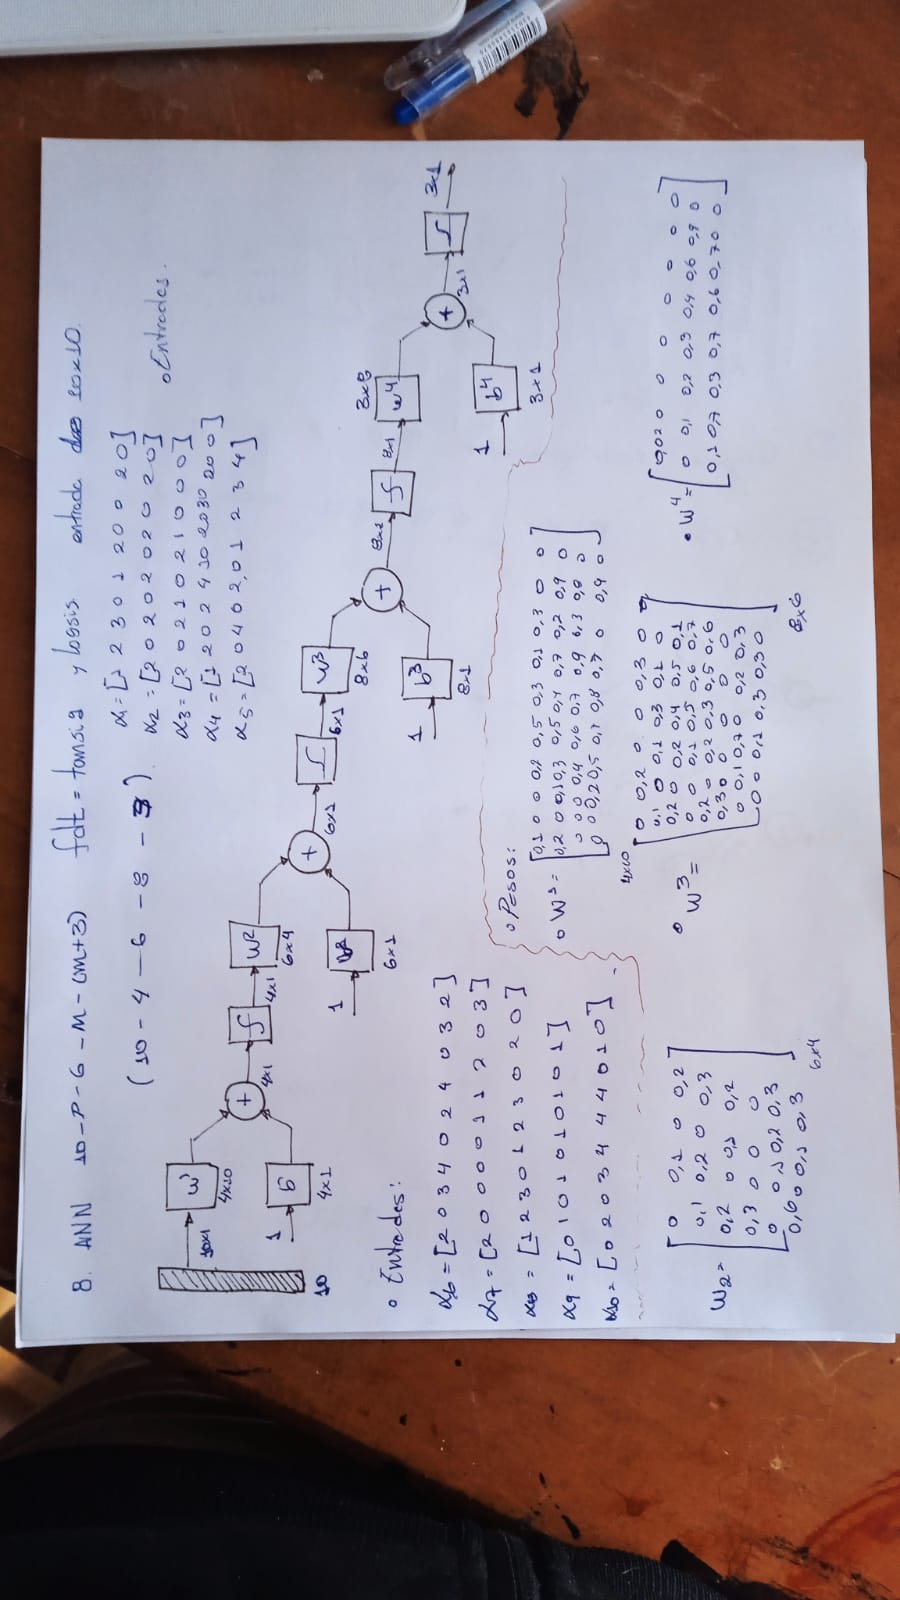 8. ANN 10-P-6-M-(m+3) fdt = tansig y logsig. entrada 10x10.
(10 - 4 - 6 - 8 - 3)
x1=[1 2 3 0 1 2 0 0 2 0]
x2=[2 0 2 0 2 0 2 0 2 0]
x3=[2 0 2 1 0 2 1 0 0 0]
x4=[1 2 0 2 4 1 0 2030 200]
x5=[2 0 4 0 2,0 1 2 3 4]
o Entradas.
10
10x1
W1
4x10
1
b
4x1
+
4x1
ʃ
4x1
W2
6x4
1
b2
6x1
+
6x1
ʃ
6x1
W3
8x6
1
b3
8x1
+
8x1
ʃ
8x1
W4
3x8
1
b4
3x1
+
3x1
ʃ
3x1
o Entradas:
x6=[2 0 3 4 0 2 4 0 3 2]
x7=[2 0 0 0 0 1 1 2 0 3]
x8=[1 2 3 0 1 2 3 0 2 0]
x9=[0 1 0 1 0 1 0 1 0 1]
x10=[0 2 0 3 4 4 4 0 1 0]
o Pesos:
o W1=
0,1 0 0 0,2 0,5 0,3 0,1 0,3 0 0
0,2 0 0,1 0,3 0,5 0,7 0,2 0,9 0
0 0 0 0,4 0,6 0,7 0,9 0,8 0
0 0 0,2 0,5 0,7 0,8 0,7 0 0,9 0
4x10
W2=
0 0,1 0 0,2
0,1 0,2 0 0,3
0,2 0 0,1 0,2
0,3 0 0 0
0 0,1 0,2 0,3
0,6 0 0,1 0,3
6x4
o W3=
0 0,2 0 0 0,3 0
0,1 0 0,1 0,3 0,1 0
0,2 0 0,2 0,4 0,5 0,1
0 0 0,1 0,5 0,6 0,7
0,2 0 0,2 0,3 0,5 0,6
0,3 0 0 0 0 0
0 0,1 0,7 0 0,2 0,3
0 0 0,1 0,3 0,3 0
8x6
• W4=
0,02 0 0 0 0 0 0
0 0,1 0,2 0,3 0,4 0,6 0,9 0
0,1 0,7 0,3 0,7 0,6 0,7 0 0